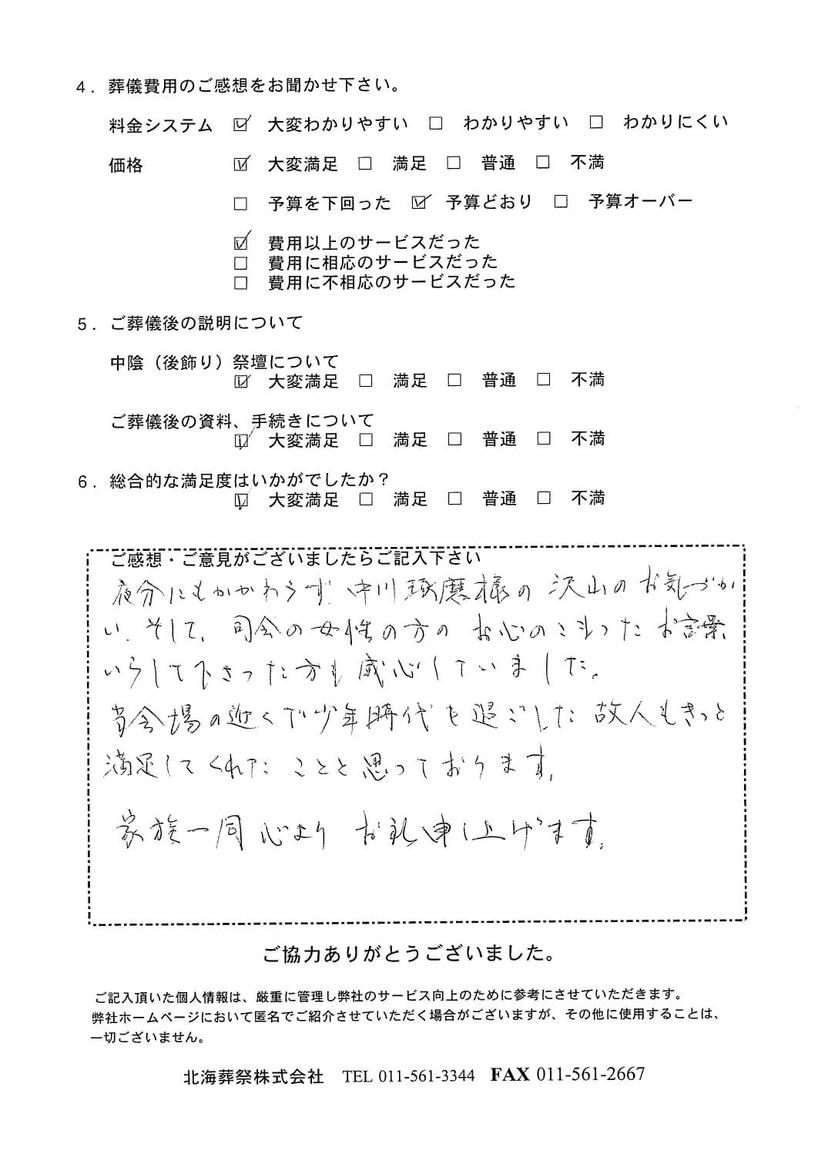 4．葬儀費用のご感想をお聞かせ下さい。
料金システム ☑ 大変わかりやすい □ わかりやすい □ わかりにくい
価格 ☑ 大変満足 □ 満足 □ 普通 □ 不満
□ 予算を下回った ☑ 予算どおり □ 予算オーバー
☑ 費用以上のサービスだった
□ 費用に相応のサービスだった
□ 費用に不相応のサービスだった
5．ご葬儀後の説明について
中陰（後飾り）祭壇について
☑ 大変満足 □ 満足 □ 普通 □ 不満
ご葬儀後の資料、手続きについて
☑ 大変満足 □ 満足 □ 普通 □ 不満
6．総合的な満足度はいかがでしたか？
☑ 大変満足 □ 満足 □ 普通 □ 不満
ご感想・ご意見がございましたらご記入下さい
夜分にもかかわらず 中川琢磨様の 沢山の お気づか
い、そして、司会の女性の方の お心のこもったお言葉
いらして下さった方も 感心していました。
当会場の近くで少年時代を過ごした 故人もきっと
満足してくれたことと思っております。
家族一同 心より お礼申し上げます。
ご協力ありがとうございました。
ご記入頂いた個人情報は、厳重に管理し弊社のサービス向上のために参考にさせていただきます。
弊社ホームページにおいて匿名でご紹介させていただく場合がございますが、その他に使用することは、
一切ございません。
北海葬祭株式会社 TEL 011-561-3344 FAX 011-561-2667